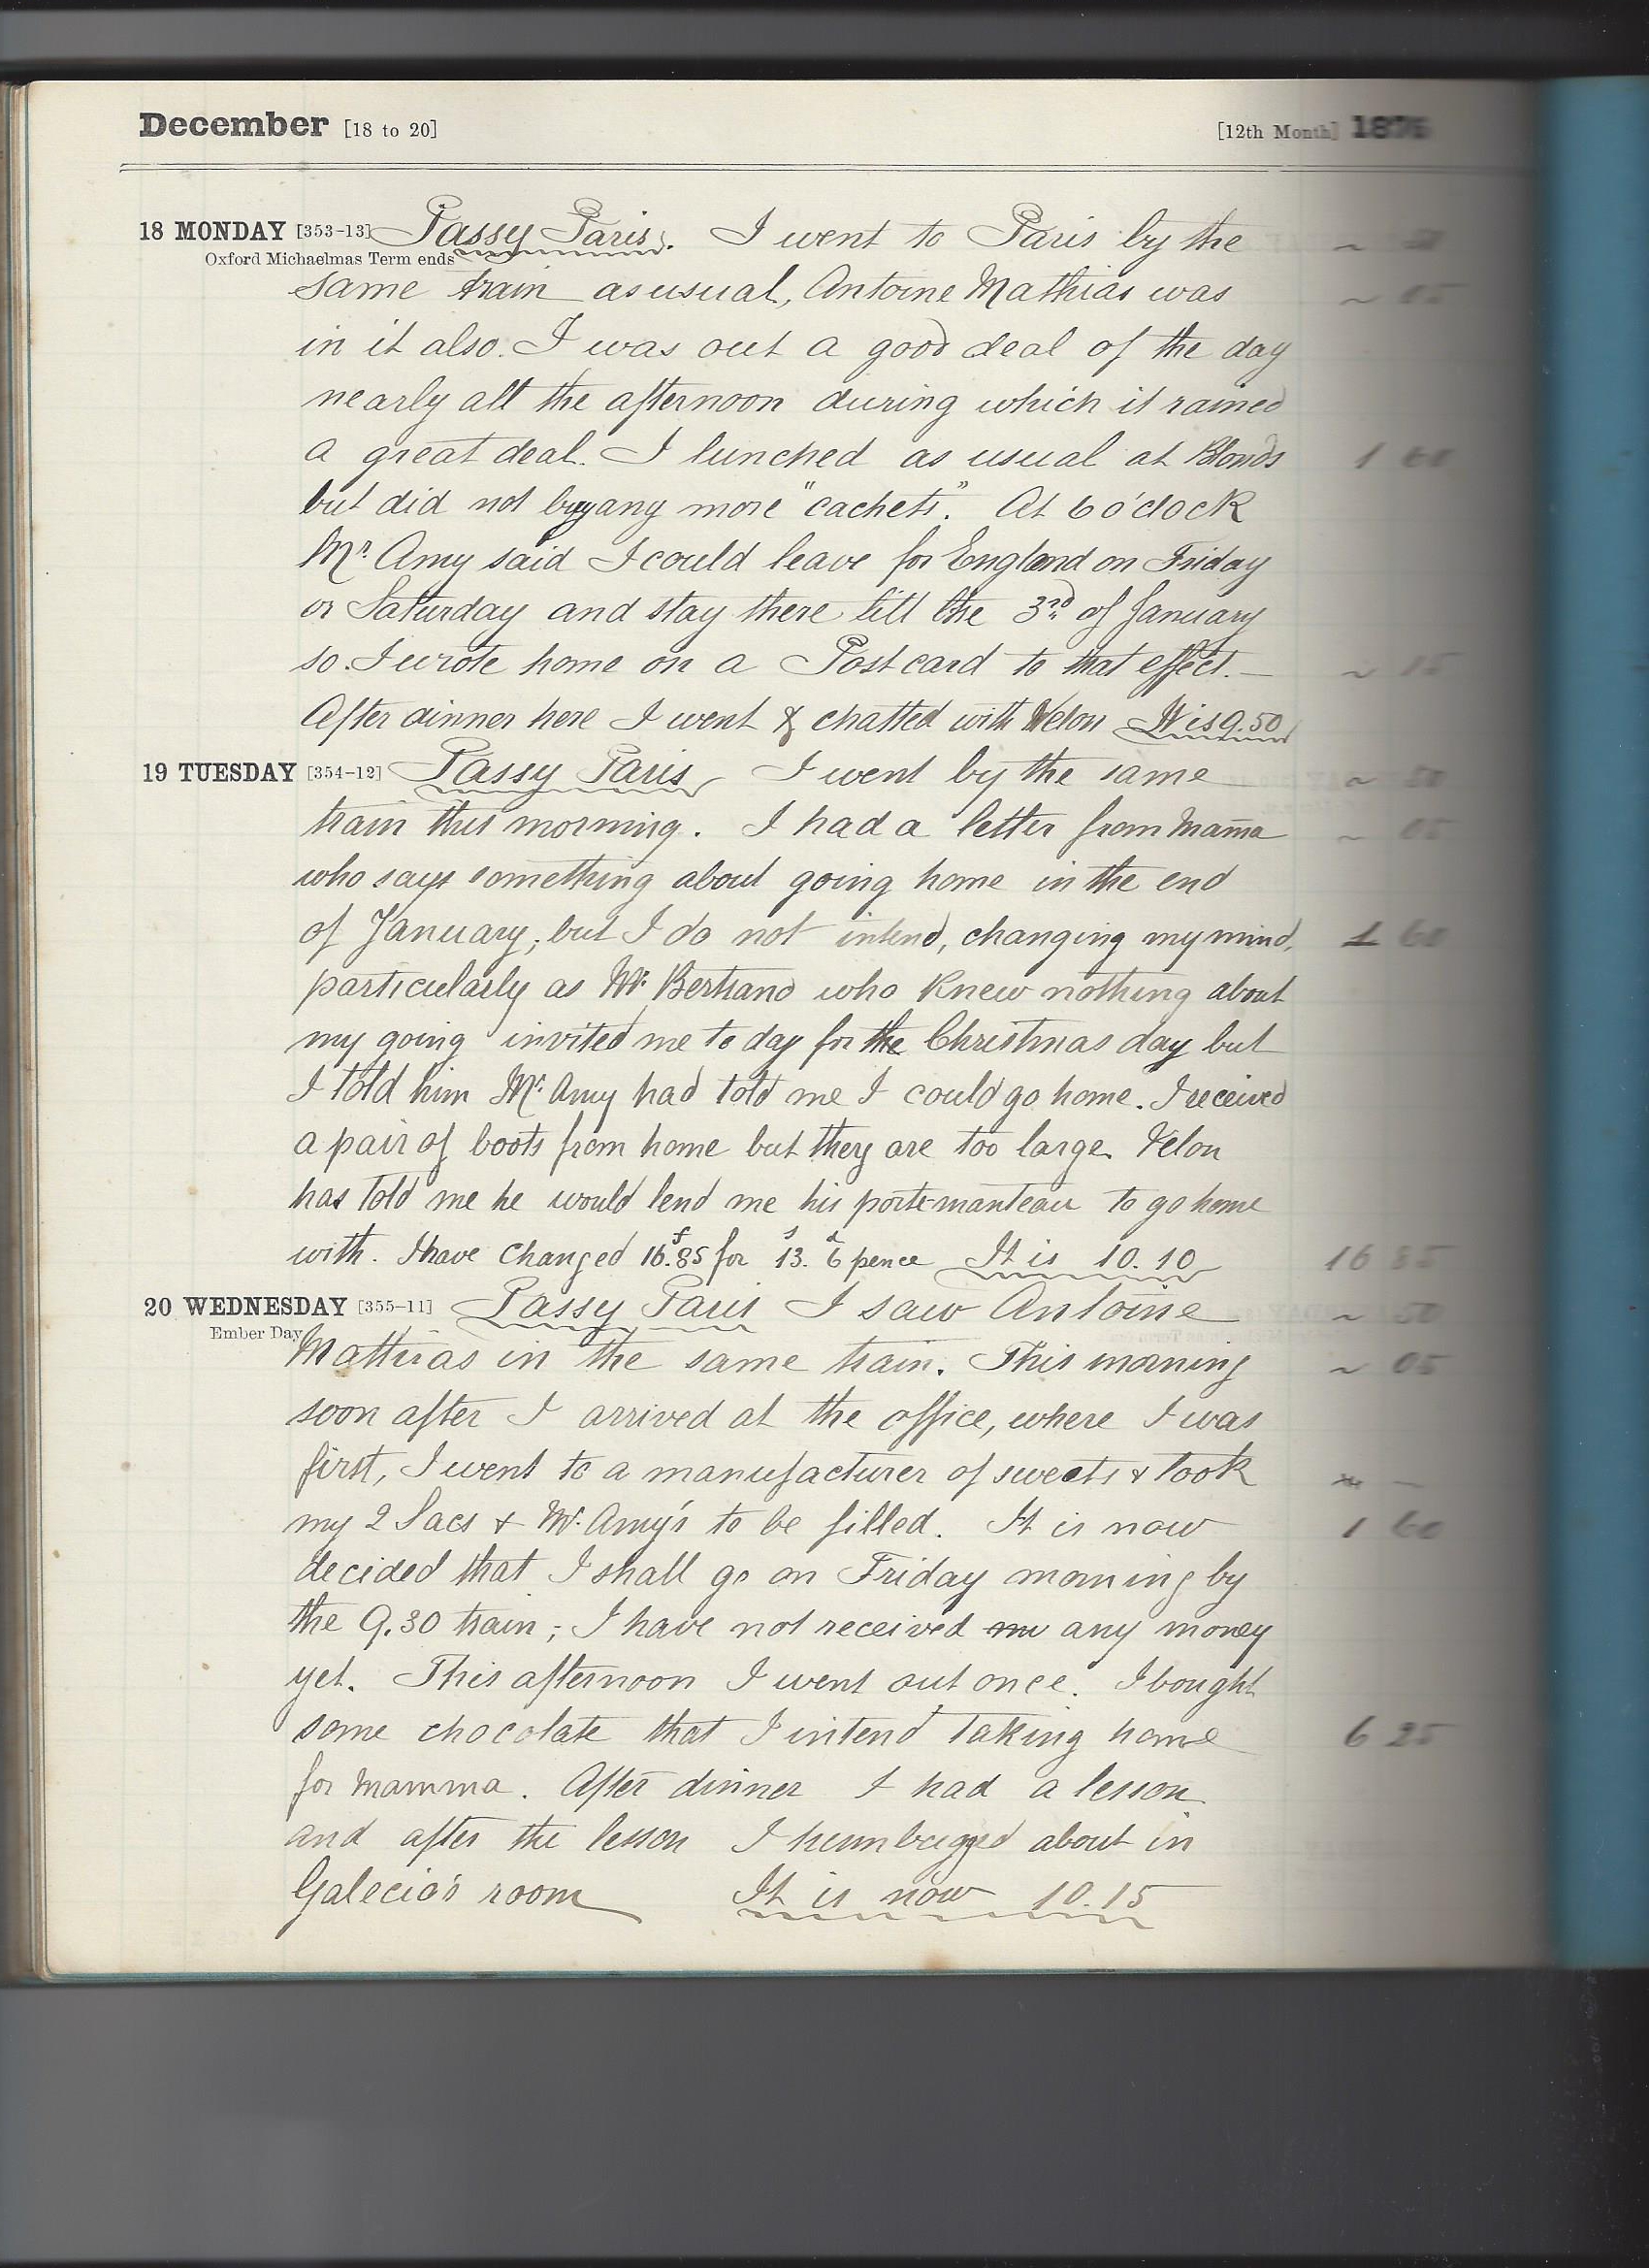 December [18 to 20] [12th Month] 1876
18 MONDAY [353-13] Passy Paris. I went to Paris by the ~ 50
Oxford Michaelmas Term ends
same train as usual, Antoine Mathias was ~ 05
in it also. I was out a good deal of the day
nearly all the afternoon during which it rained
a great deal. I lunched as usual at Blonds 1 60
but did not buy any more "cachets". At 6 o'clock
Mr. Amy said I could leave for England on Friday
or Saturday and stay there till the 3rd of January
so I wrote home on a Post card to that effect. — ~ 15
After dinner here I went & chatted with Velon It is 9.50
19 TUESDAY [354-12] Passy Paris I went by the same ~ 50
train this morning. I had a letter from Mama ~ 05
who says something about going home in the end
of January; but I do not intend, changing my mind, 1 60
particularly as Mr. Bertrand who knew nothing about
my going invited me to day for the Christmas day but
I told him Mr. Amy had told me I could go home. I received
a pair of boots from home but they are too large. Velon
has told me he would lend me his porte-manteau to go home
with. I have changed 16.f85 for 13.s 6d pence It is 10.10 16 85
20 WEDNESDAY [355-11] Passy Paris I saw Antoine ~ 50
Ember Day
Matthias in the same train. This morning ~ 05
soon after I arrived at the office, where I was
first, I went to a manufacturer of sweets & took
my 2 Sacs & Mr. Amy's to be filled. It is now 1 60
decided that I shall go on Friday morning by
the 9.30 train; I have not received any money
yet. This afternoon I went out once. I bought
some chocolate that I intend taking home 6 25
for Mamma. After dinner I had a lesson
and after the lesson I humbugged about in
Galecio's room It is now 10.15